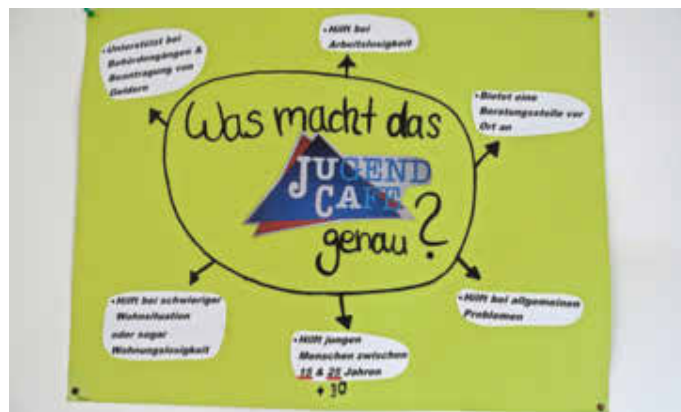 Was macht das
JUGEND
CAFE
genau?
• Unterstützt bei
Behördengängen &
Beantragung von
Geldern
• Hilft bei
Arbeitslosigkeit
• Bietet eine
Beratungsstelle vor
Ort an
• Hilft bei allgemeinen
Problemen
• Hilft jungen
Menschen zwischen
15 & 25 Jahren
+ 30
• Hilft bei schwieriger
Wohnsituation
oder sogar
Wohnungslosigkeit